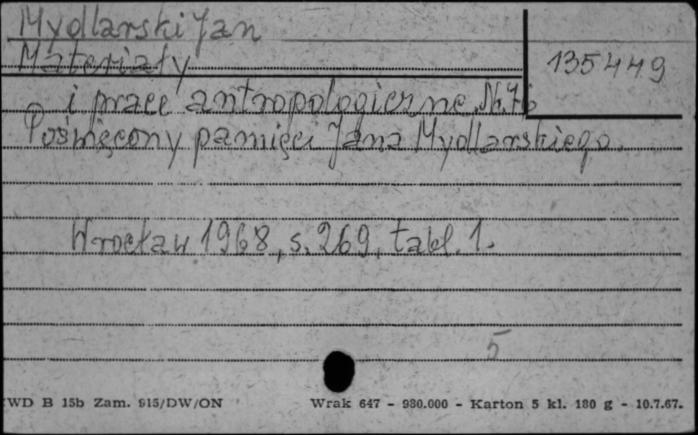 Mydlarski Jan
135449
Materiały
i prace antropologiczne, Nr. 76
Poświęcony pamięci Jana Mydlarskiego.
Wrocław 1968, s. 269, tabl. 1.
5
WD B 15b Zam. 915/DW/ON Wrak 647 - 930.000 - Karton 5 kl. 180 g - 10.7.67.